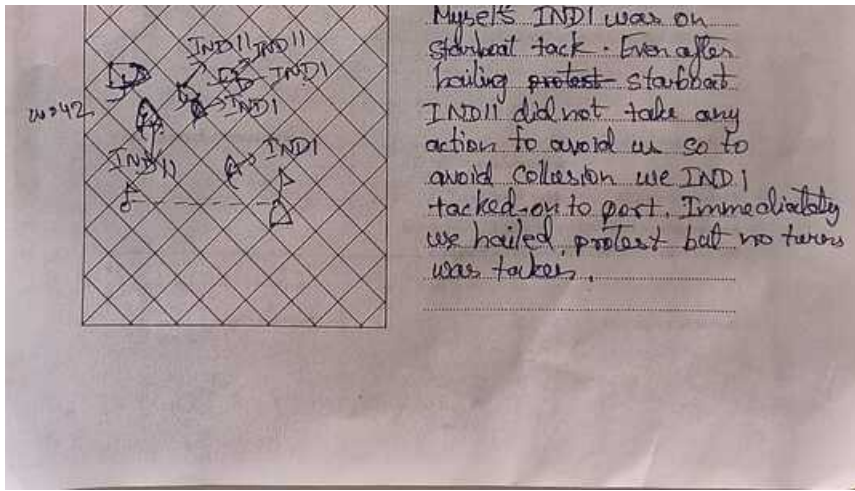 IND11 IND11
IND1
IND1
w=42
IND11
IND1
Myself IND1 was on
starboat tack. Even after
hailing protest starboat
IND11 did not take any
action to avoid us so to
avoid Collusion we IND1
tacked on to port. Immediately
we hailed protest but no turns
was taken.